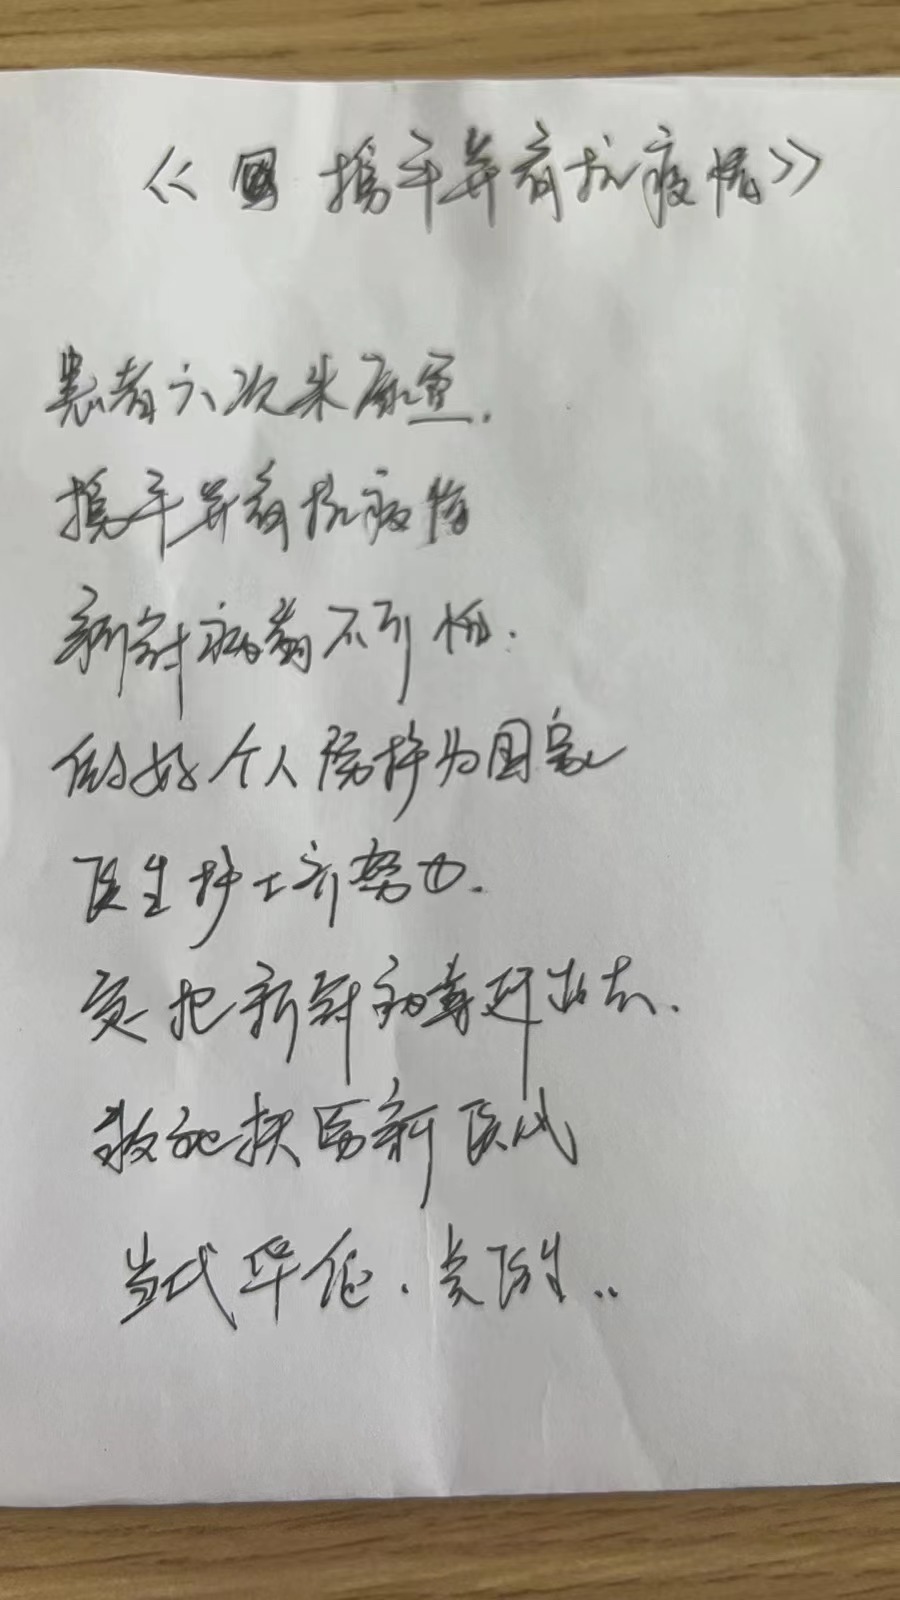 《携手并肩抗疫情》
患者六次来康复.
携手并肩抗疫情
新冠病毒不可怕.
做好个人防护为国家
医生护士齐努力.
定把新冠病毒赶出去.
救死扶伤新医风
当代华佗.